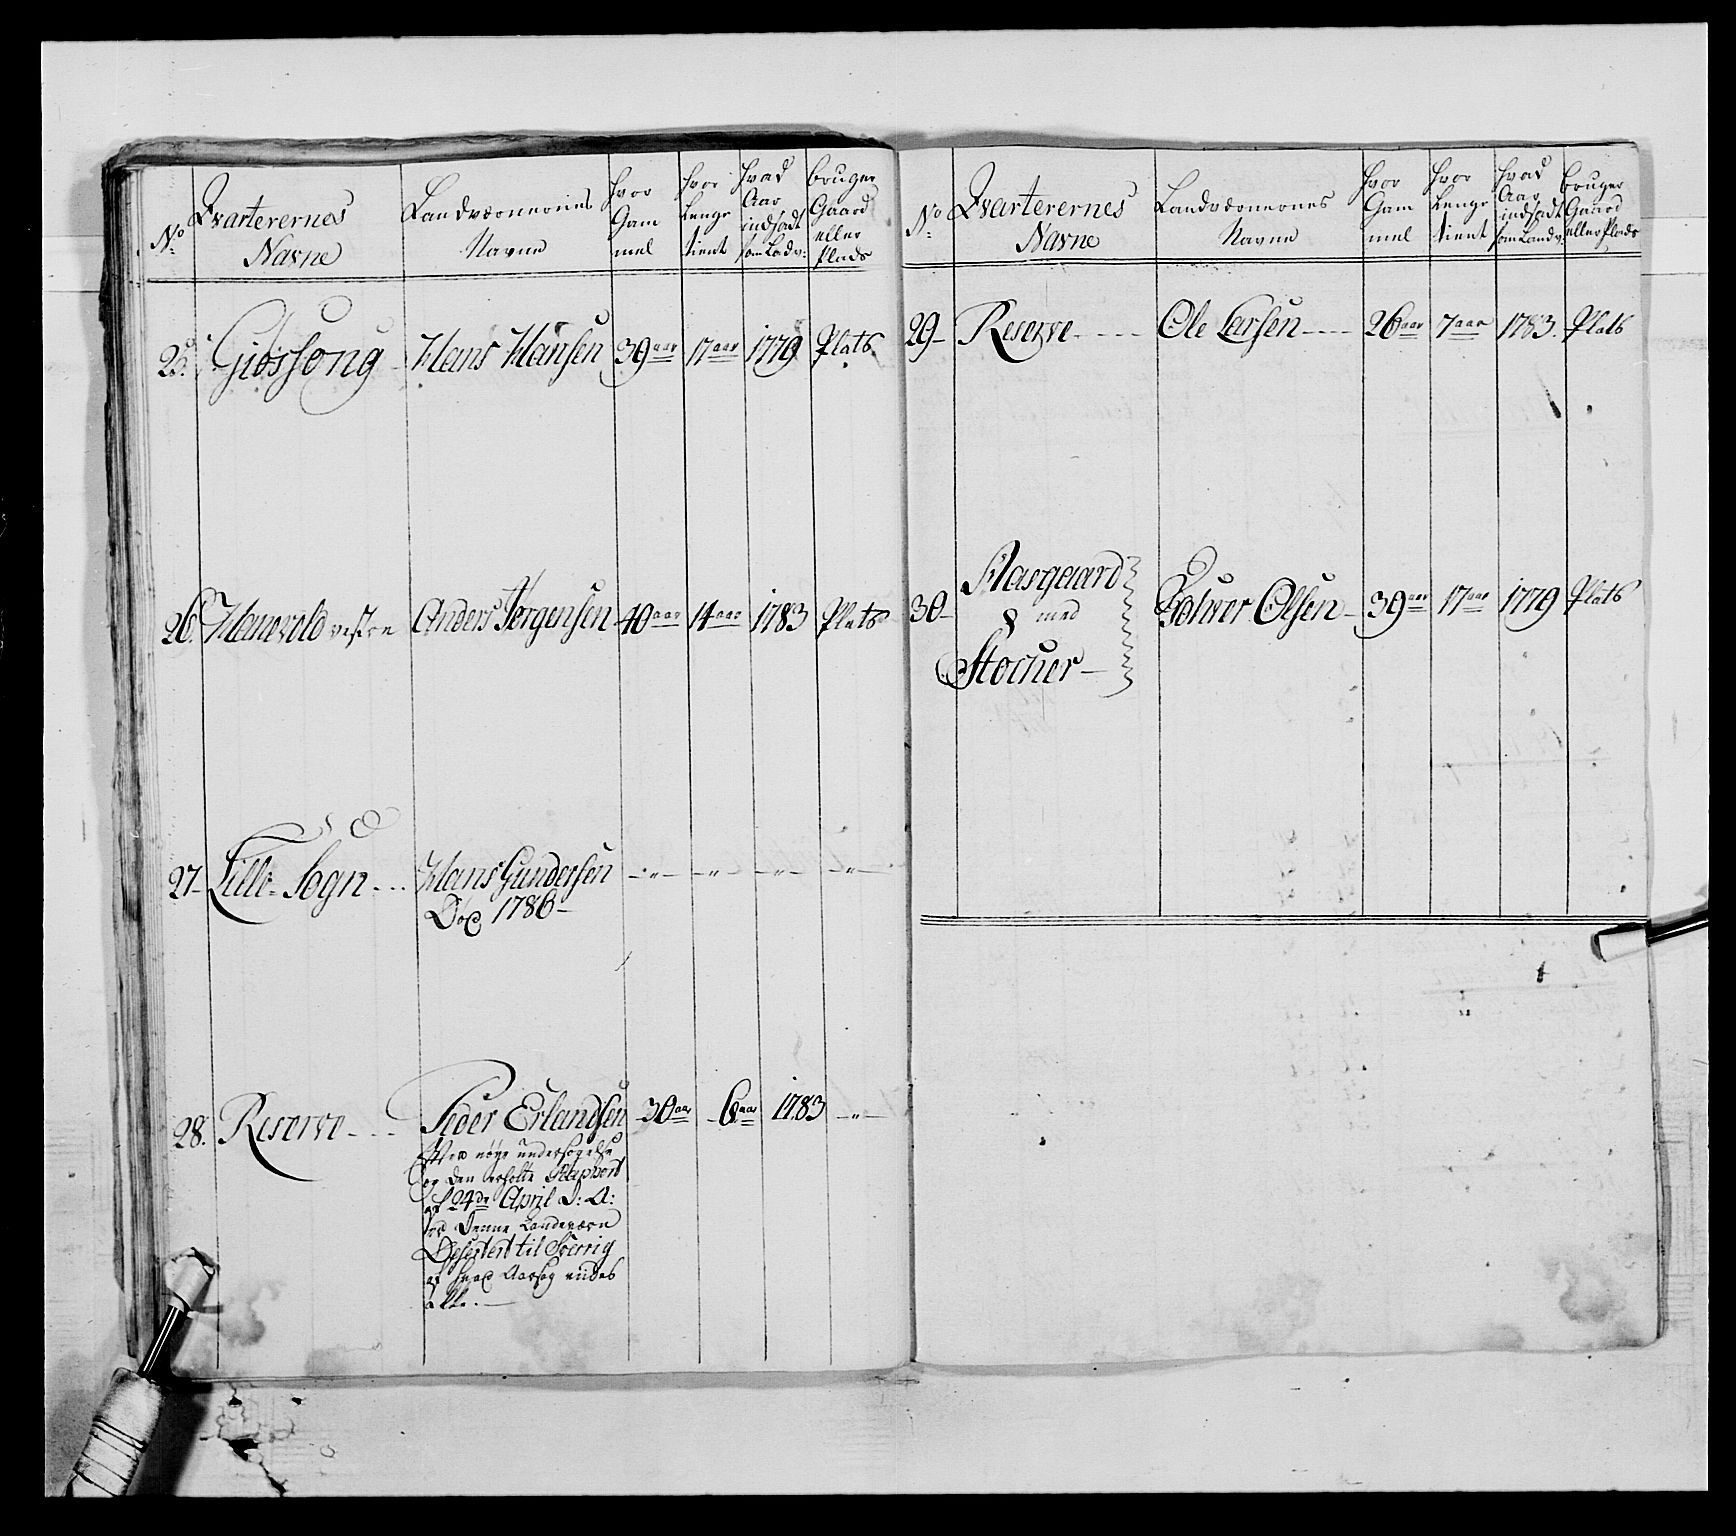 No Qvarterernes Navne Landværnernes Navne Hvor Gam mel Hvor Lenge tient Hvad Aar indsadt som Landv: bruger Gaard eller Plads
25. Giøssong Hans Hansen 39 aar 17 aar 1779 Plats.
26. Hanevold vestre Anders Jørgensen 40 aar 14 aar 1783 Plats
27 Lille-Sogn Hans Gundersen -"- -"- -"- -"-
Død 1786
28. Reserve Peder Erlandsen 30 aar 6 aar 1783 -"-
nøye undersøgelse
og den erholte Rapport
af 24de April d: A:
er denne Landeværn
Desertert til Sverrig
af hvad Aarsag vides
ikke.
No Qvarterernes Navne Landværnernes Navne Hvor Gam mel Hvor Lenge tient Hvad Aar indsadt som Landv: bruger Gaard eller Plads
29 Reserve Ole Larsen 26 aar 7 aar 1783. Plats
30 Aasgaard
med Olsen 39 aar 17 aar 1779 Plats
Stocher